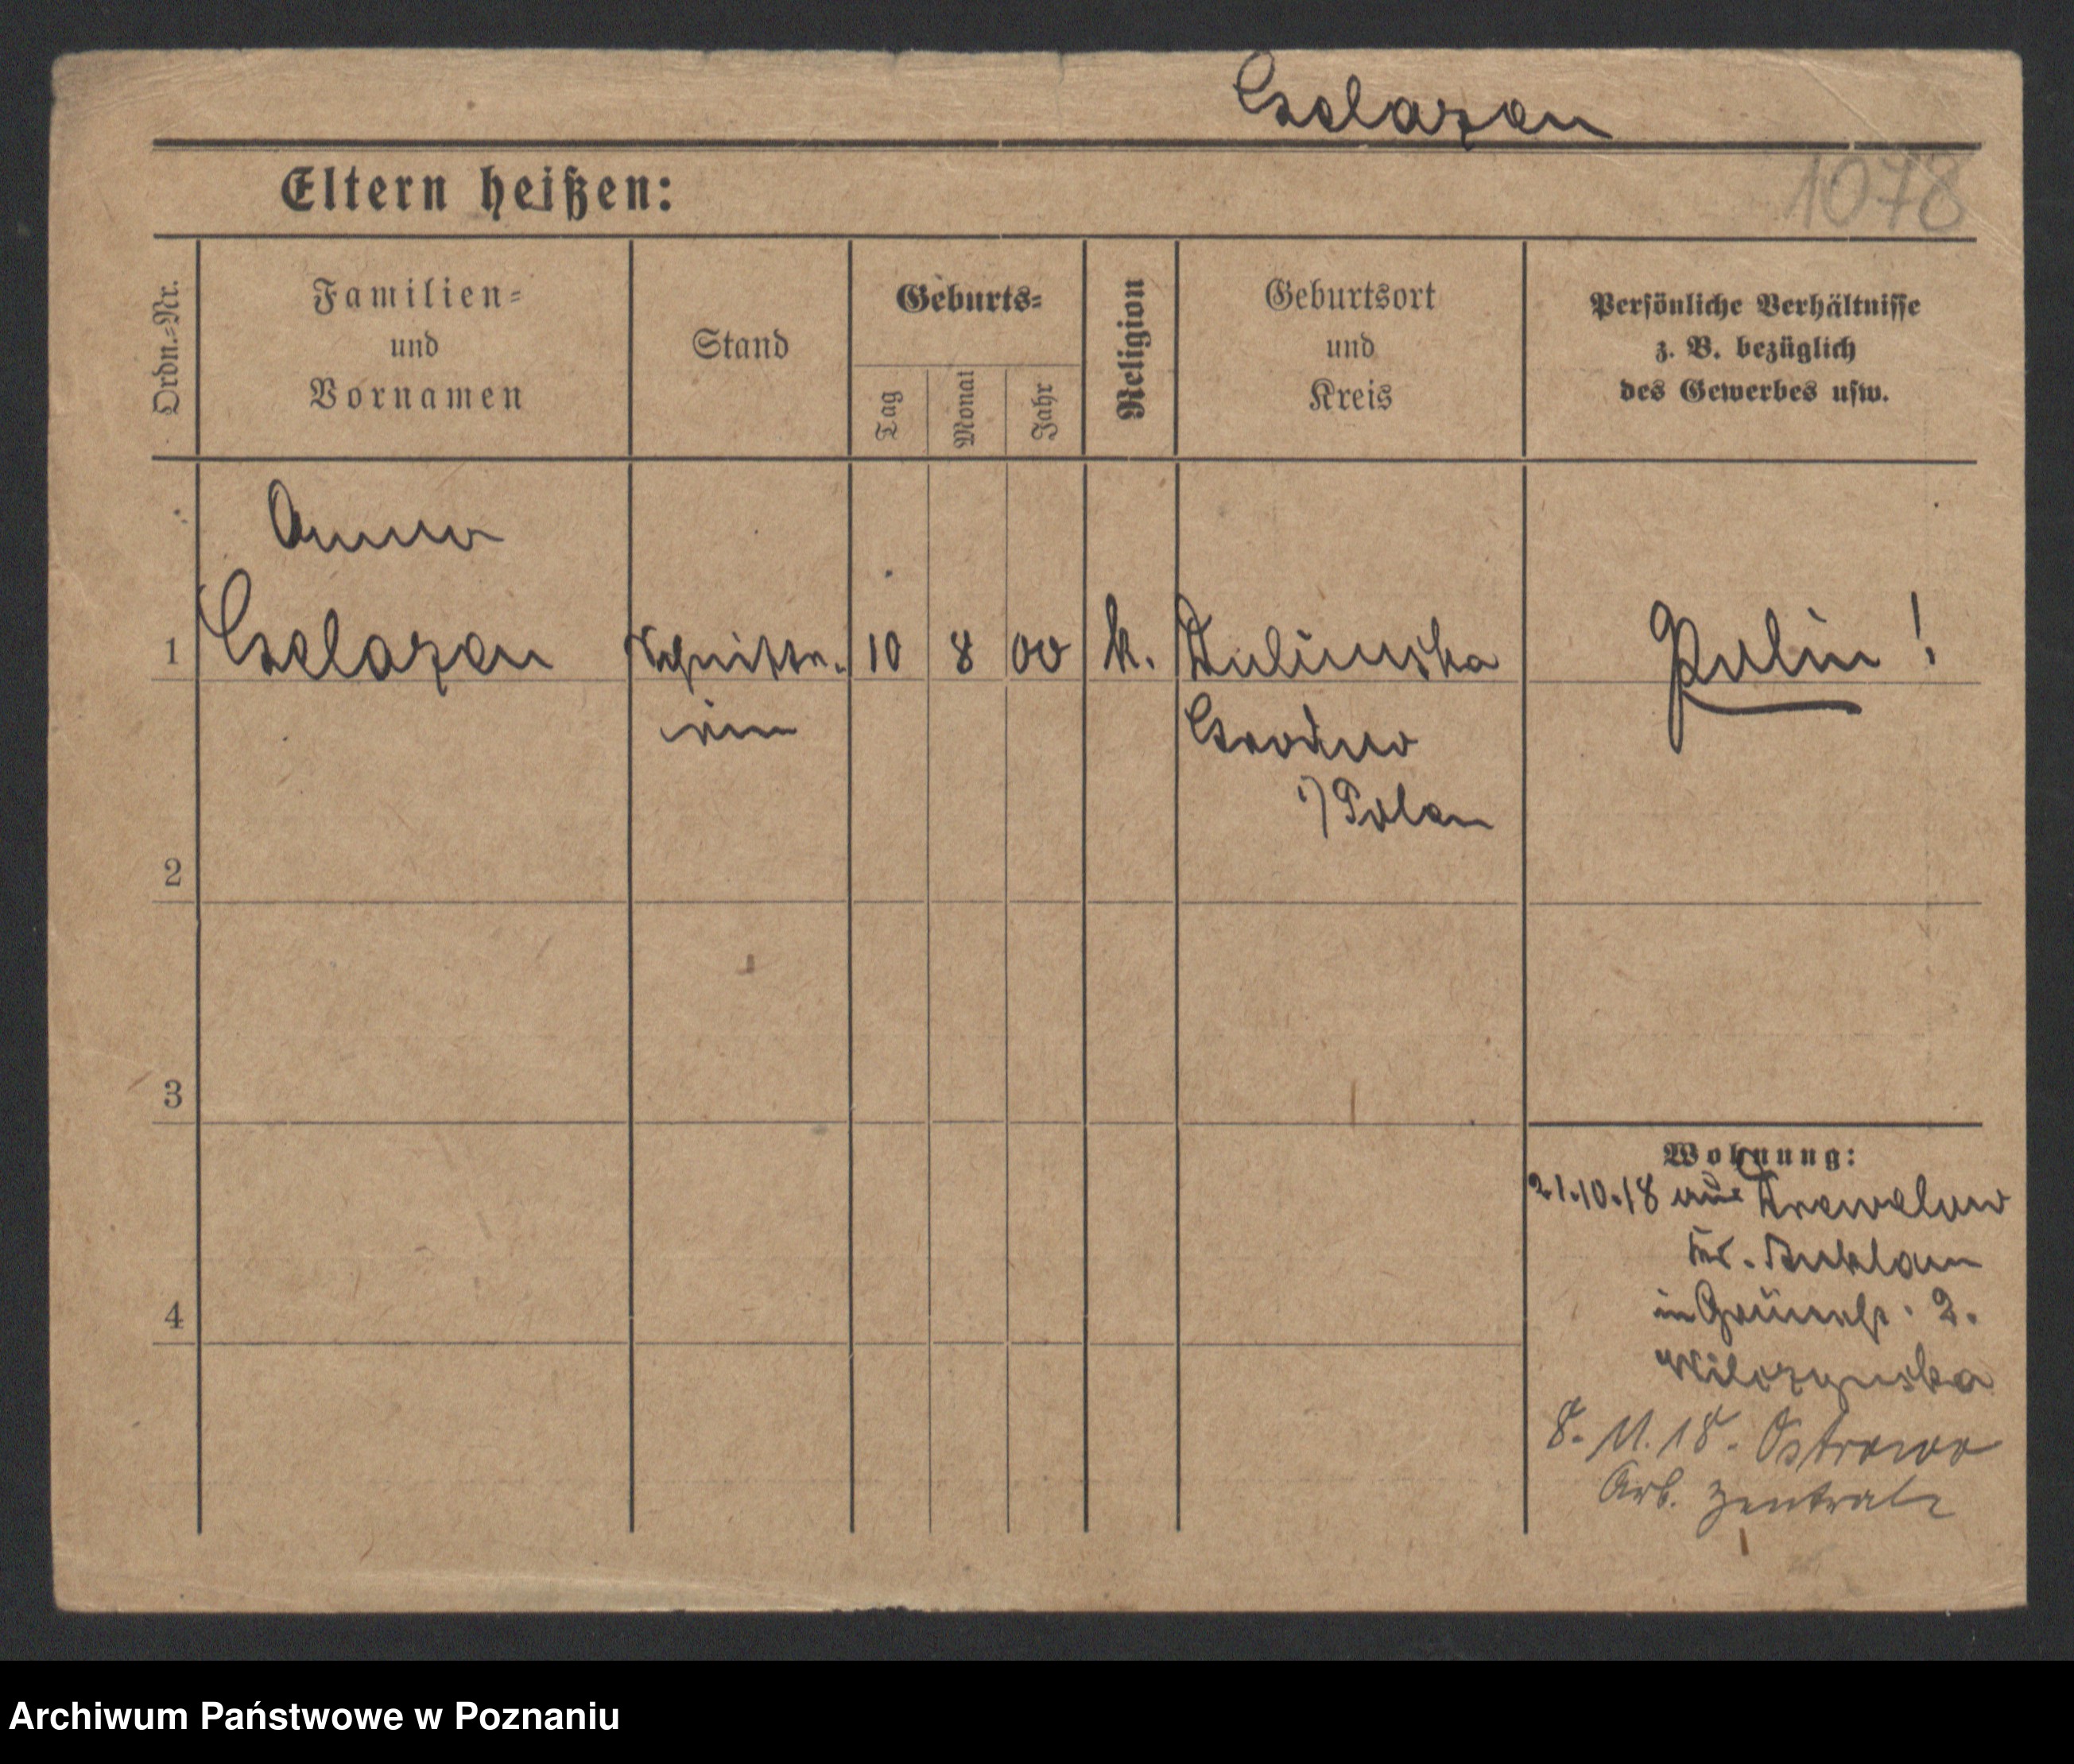 Czelazen
1078
Eltern heißen:
Ordn.=Nr.
Familien=
und
Vornamen
Stand
Geburts=
Tag
Monat
Jahr
Religion
Geburtsort
und
Kreis
Persönliche Verhältnisse
z. B. bezüglich
des Gewerbes usw.
Anna
1 Czelazen Schnitte- 10 8 00 k. Dulinska Polin!
rin
Grodno
i/Polen
2
3
4
Wohnung:
21.10.18 aus Drewelow
Kr. Anklam
in Grünestr. 2.
Wilczynska
8. 11. 18. Ostrowo
Arb. Zentrale
Archiwum Państwowe w Poznaniu